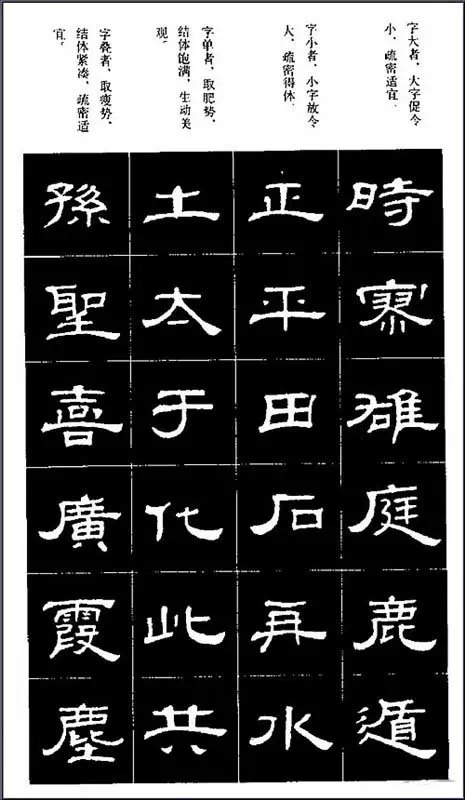 字大者、大字促令
小、疏密适宜。
時
雄
庭
鹿
遁
字小者、小字放令
大、疏密得体。
正
平
田
石
再
水
字单者、取肥势，
结体饱满，生动美
观。
土
太
于
化
此
共
字叠者、取瘦势、
结体紧凑、疏密适
宜。
孫
聖
喜
廣
霞
塵